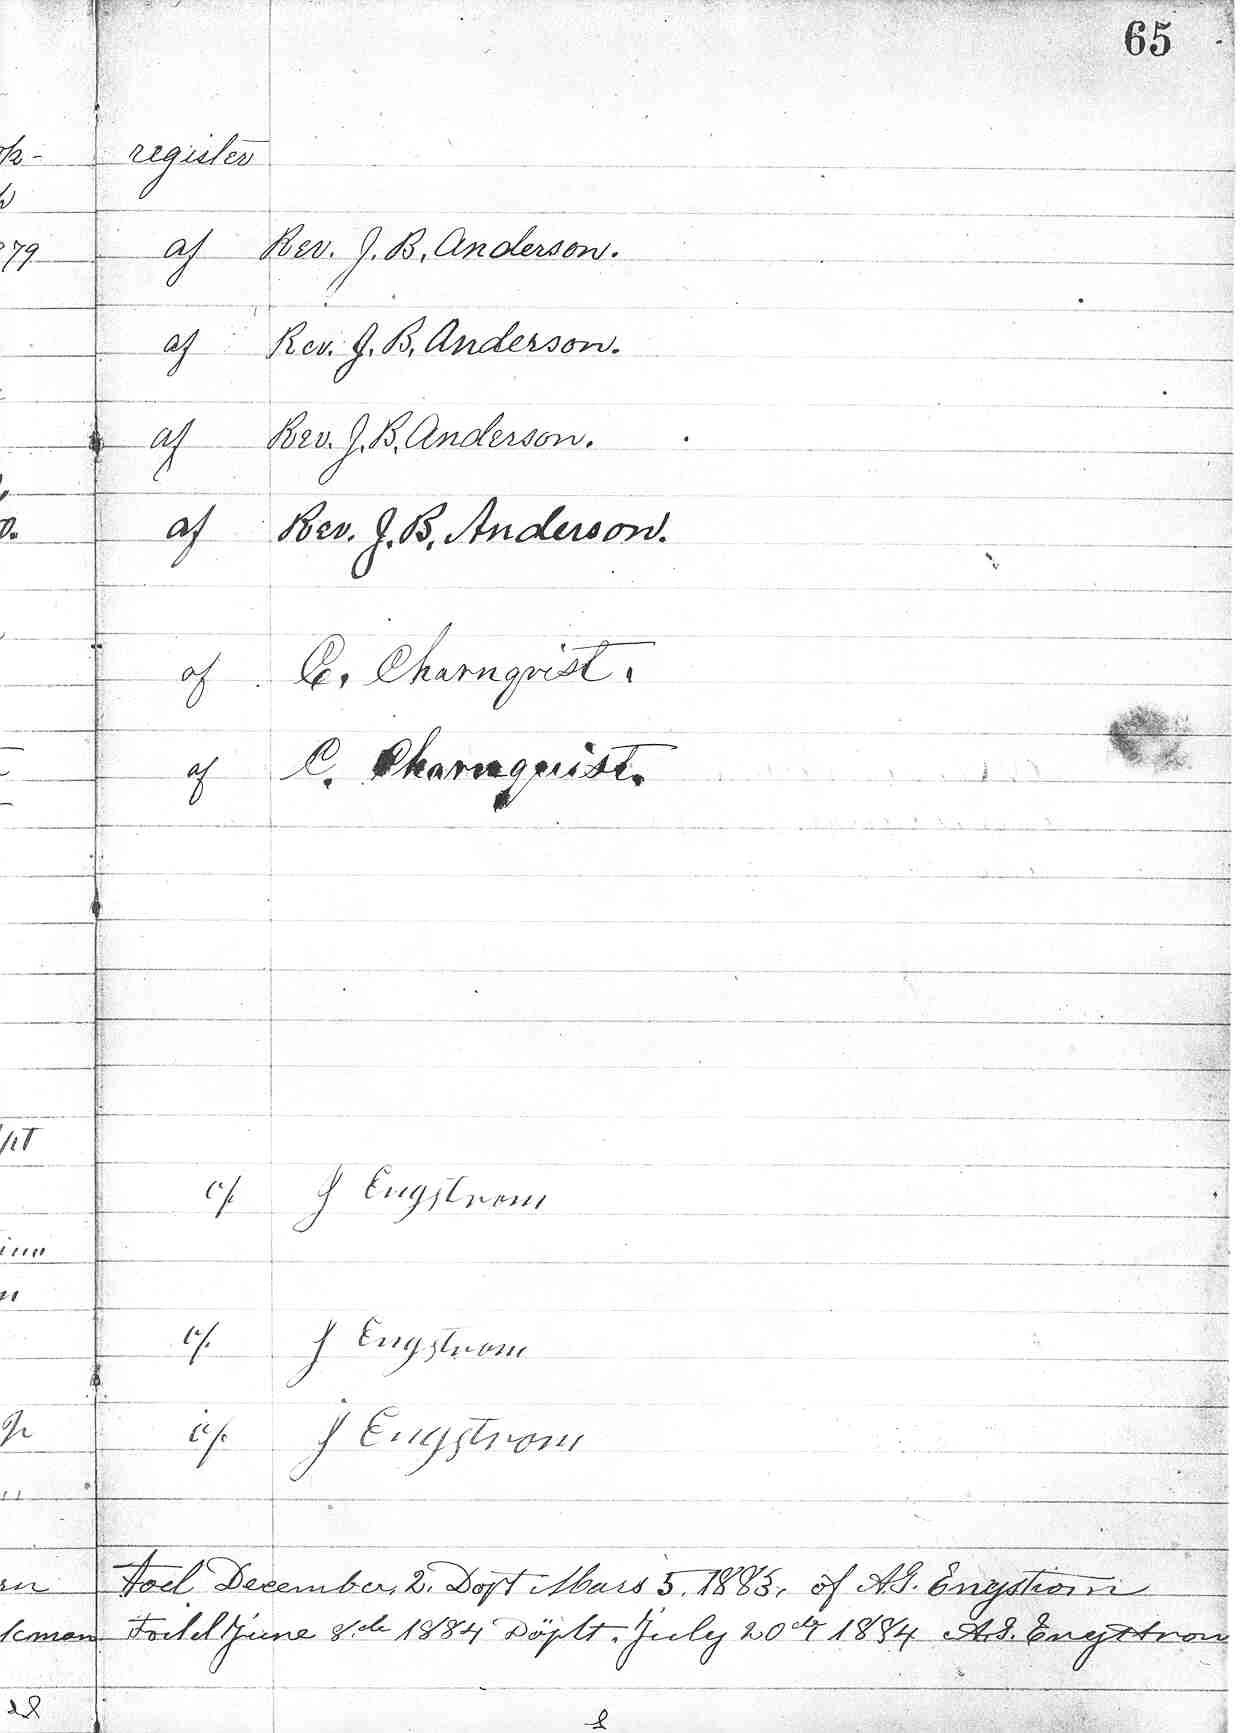 65
register
79 af Rev. J. B. Anderson.
af Rev. J. B. Anderson.
af Rev. J. B. Anderson.
af Rev. J. B. Anderson.
of C. Charnqvist.
of C. Charnquist.
pt
af J Engstrom
af J Engstrom
af J Engstrom
December, 2. Dopt Mars 5. 1883, of A.G. Engstrom
kman June 8de 1884 Döpt. July 20de 1884 A.G. Engstrom